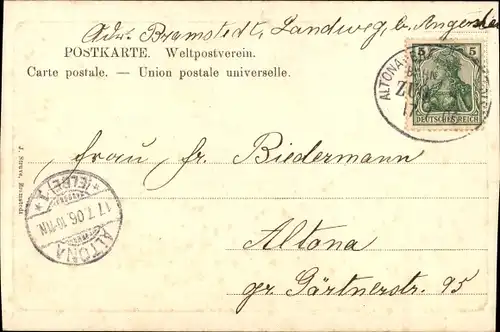 Adr. Bramstedt, Landweg, b.
POSTKARTE. Weltpostverein.
Carte postale. — Union postale universelle.
5 5
DEUTSCHES REICH
ALTONA
17
Frau Fr. Biedermann
Altona
gr Gärtnerstr. 95
ALTONA
17.7.06.10-11N.
*(ELBE)1*
J. Struve, Bramstedt